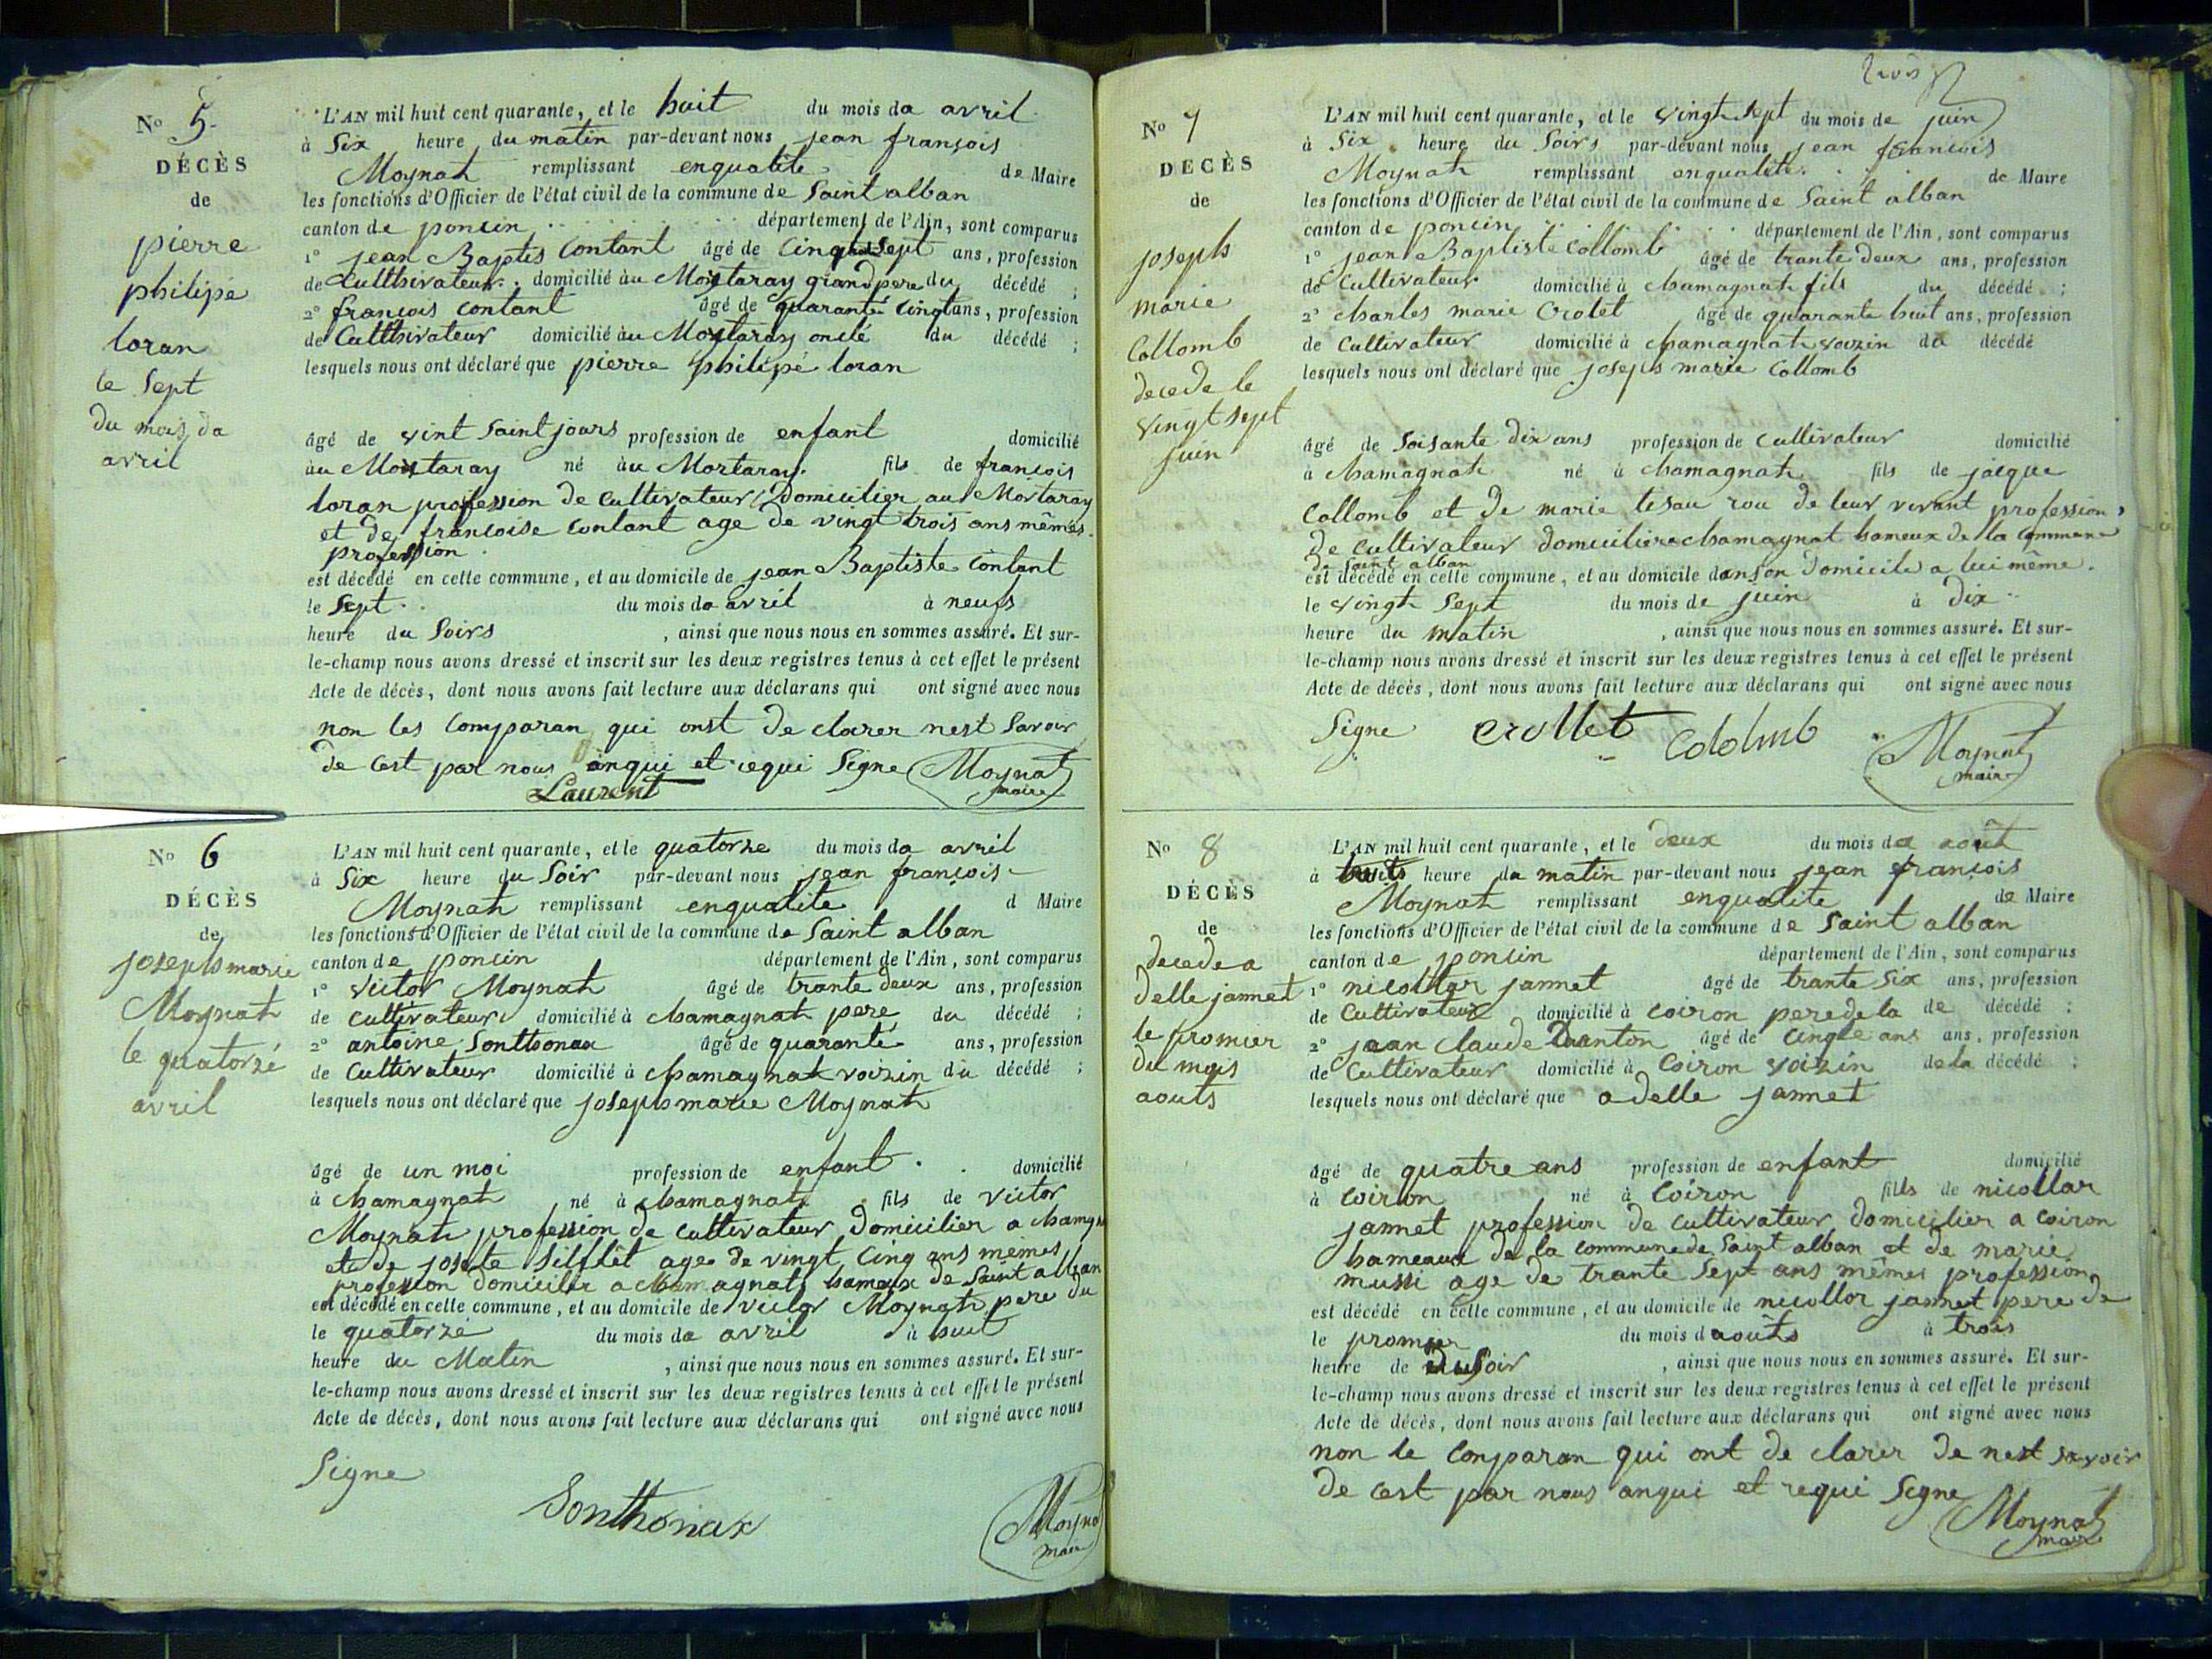 No 5.
DÉCÈS
de
pierre
philipe
loran
le sept
du mois da
avril
L'AN mil huit cent quarante, et le huit du mois da avril
à Six heure du matin par-devant nous jean françois
Moynat remplissant enqualite de Maire
les fonctions d'Officier de l'état civil de la commune de Saint alban
canton de poncin département de l'Ain, sont comparus
1° jean Baptis Contant âgé de Cinq sept ans, profession
de Cultthivateur domicilié au Mortaray grand pere du décédé ;
2° françois contant âgé de quarante Cinqt ans, profession
de Cultthivateur domicilié au Mortaray onclé du décédé ;
lesquels nous ont déclaré que pierre philipé loran
âgé de vint Saint jours profession de enfant domicilié
au Mortaray né au Mortaray fils de françois
loran profession de cultivateur Domicilier au Mortaray
et de françoise contant age de vingt trois ans mêmes
profession
est décédé en cette commune, et au domicile de jean Baptiste Contant
le Sept du mois da avril à neufs
heure du Soirs , ainsi que nous nous en sommes assuré. Et sur-
le-champ nous avons dressé et inscrit sur les deux registres tenus à cet effet le présent
Acte de décès, dont nous avons fait lecture aux déclarans qui ont signé avec nous
non les Comparan qui onst de clarer nest Savoir
de cest par nous anqui et requi Signe Moynat
Laurent maire
No 6
DÉCÈS
de
josephs marie
Moynat
le quatorzé
avril
L'AN mil huit cent quarante, et le quatorze du mois da avril
à Six heure du Soir par-devant nous jean françois
Moynat remplissant enqualite d Maire
les fonctions d'Officier de l'état civil de la commune de Saint alban
canton de poncin département de l'Ain, sont comparus
1° Victor Moynat âgé de trante deux ans, profession
de cultivateur domicilié à chamagnat pere du décédé ;
2° antoine Sontthonax âgé de quaranté ans, profession
de Cultivateur domicilié à chamagnat voizin du décédé ;
lesquels nous ont déclaré que josephs marie Moynat
âgé de un moi profession de enfant domicilié
à chamagnat né à chamagnat fils de victor
Moynat profession de cultivateur Domicilier a chamgn
et de josete age de vingt Cinq ans mêmes
profession domicilir a chamagnat hameux de Saint alban
est décédé en cette commune, et au domicile de victor Moynat pere du
le quatorzé du mois da avril à huit
heure du Matin , ainsi que nous nous en sommes assuré. Et sur-
le-champ nous avons dressé et inscrit sur les deux registres tenus à cet effet le présent
Acte de décès, dont nous avons fait lecture aux déclarans qui ont signé avec nous
Signe
Sonthonax Moyna
mair
trois
No 7
DÉCÈS
de
josephs
marie
Collomb
decede le
vingt sept
juin
L'AN mil huit cent quarante, et le vingt sept du mois de juin
à Six heure du Soirs par-devant nous jean francois
Moynat remplissant enqualite de Maire
les fonctions d'Officier de l'état civil de la commune de Saint alban
canton de poncin département de l'Ain, sont comparus
1° jean Baptiste Collomb âgé de trante deux ans, profession
de Cultivateur domicilié à chamagnat fils du décédé ;
2° charles marie Crolet âgé de quarante huit ans, profession
de Cultivateur domicilié à chamagnat voizin du décédé
lesquels nous ont déclaré que josephs marie Collomb
âgé de Soisante dix ans profession de Cultivateur domicilié
à chamagnat né à chamagnat fils de jacque
Collomb et de marie tesau rou de leur vivant profession
de cultivateur domicilier a chamagnat hameux de la commune
de Saint alban
est décédé en cette commune, et au domicile dans on Domicile a lui même.
le vingt Sept du mois de juin à dix
heure du matin , ainsi que nous nous en sommes assuré. Et sur-
le-champ nous avons dressé et inscrit sur les deux registres tenus à cet effet le présent
Acte de décès, dont nous avons fait lecture aux déclarans qui ont signé avec nous
Signe crollet Colomb Moynat
maire
No 8
DÉCÈS
de
decede a
delle jannet
le promier
du mois
aouts
L'AN mil huit cent quarante, et le deux du mois da août
à huits heure da matin par-devant nous jean françois
Moynat remplissant enqualite de Maire
les fonctions d'Officier de l'état civil de la commune de Saint alban
canton de poncin département de l'Ain, sont comparus
1° nicollar jannet âgé de trante six ans, profession
de Cultivateur domicilié à coiron pere de la de décédé ;
2° jean Claude âgé de Cinqte ans ans, profession
de Cultivateur domicilié à Coiron voizin de la décédé ;
lesquels nous ont déclaré que adelle jannet
âgé de quatre ans profession de enfant domicilié
à coiron né à Coiron fills de nicollar
jannet profession de cultivateur domicilier a coiron
hameaux de la commune de Saint alban et de marie
mussi age de trante Sept ans mêmes profession
est décédé en cette commune, et au domicile de nicollor jannet pere de
le promier du mois d aoûts à trois
heure de du Soir , ainsi que nous nous en sommes assuré. Et sur-
le-champ nous avons dressé et inscrit sur les deux registres tenus à cet effet le présent
Acte de décès, dont nous avons fait lecture aux déclarans qui ont signé avec nous
non le Conparan qui ont de clarer de nest savoir
de cest par nous anqui et requi Signe Moynat
maire